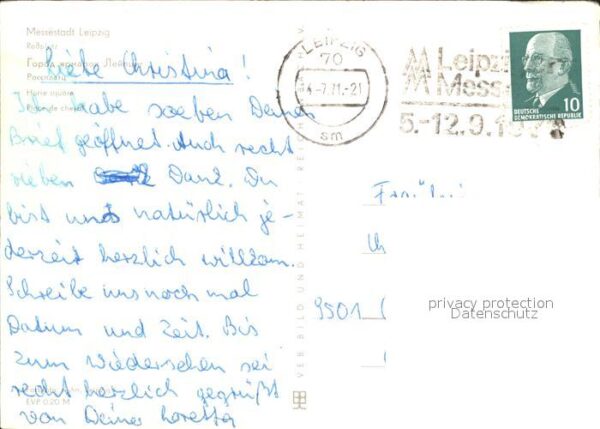 Messestadt Leipzig
Roßplatz
Город ярмарок Лейпциг
Horse square
Liebe Christina!
Ich habe soeben Deinen
Brief geöffnet. Auch recht
lieben Dank. Du
bist uns natürlich je-
derzeit herzlich willkom.
Schreibe uns noch mal
Datum und Zeit. Bis
zum Wiedersehen sei
recht herzlich gegrüßt
von Deiner Loretta
EVP 0,20 M
VEB BILD UND HEIMAT REICH
LEIPZIG
70
-7.71.-21
sm
Leipzig
Messe
5.-12.9.19
DEUTSCHE
DEMOKRATISCHE REPUBLIK
10
9501
privacy protection
Datenschutz